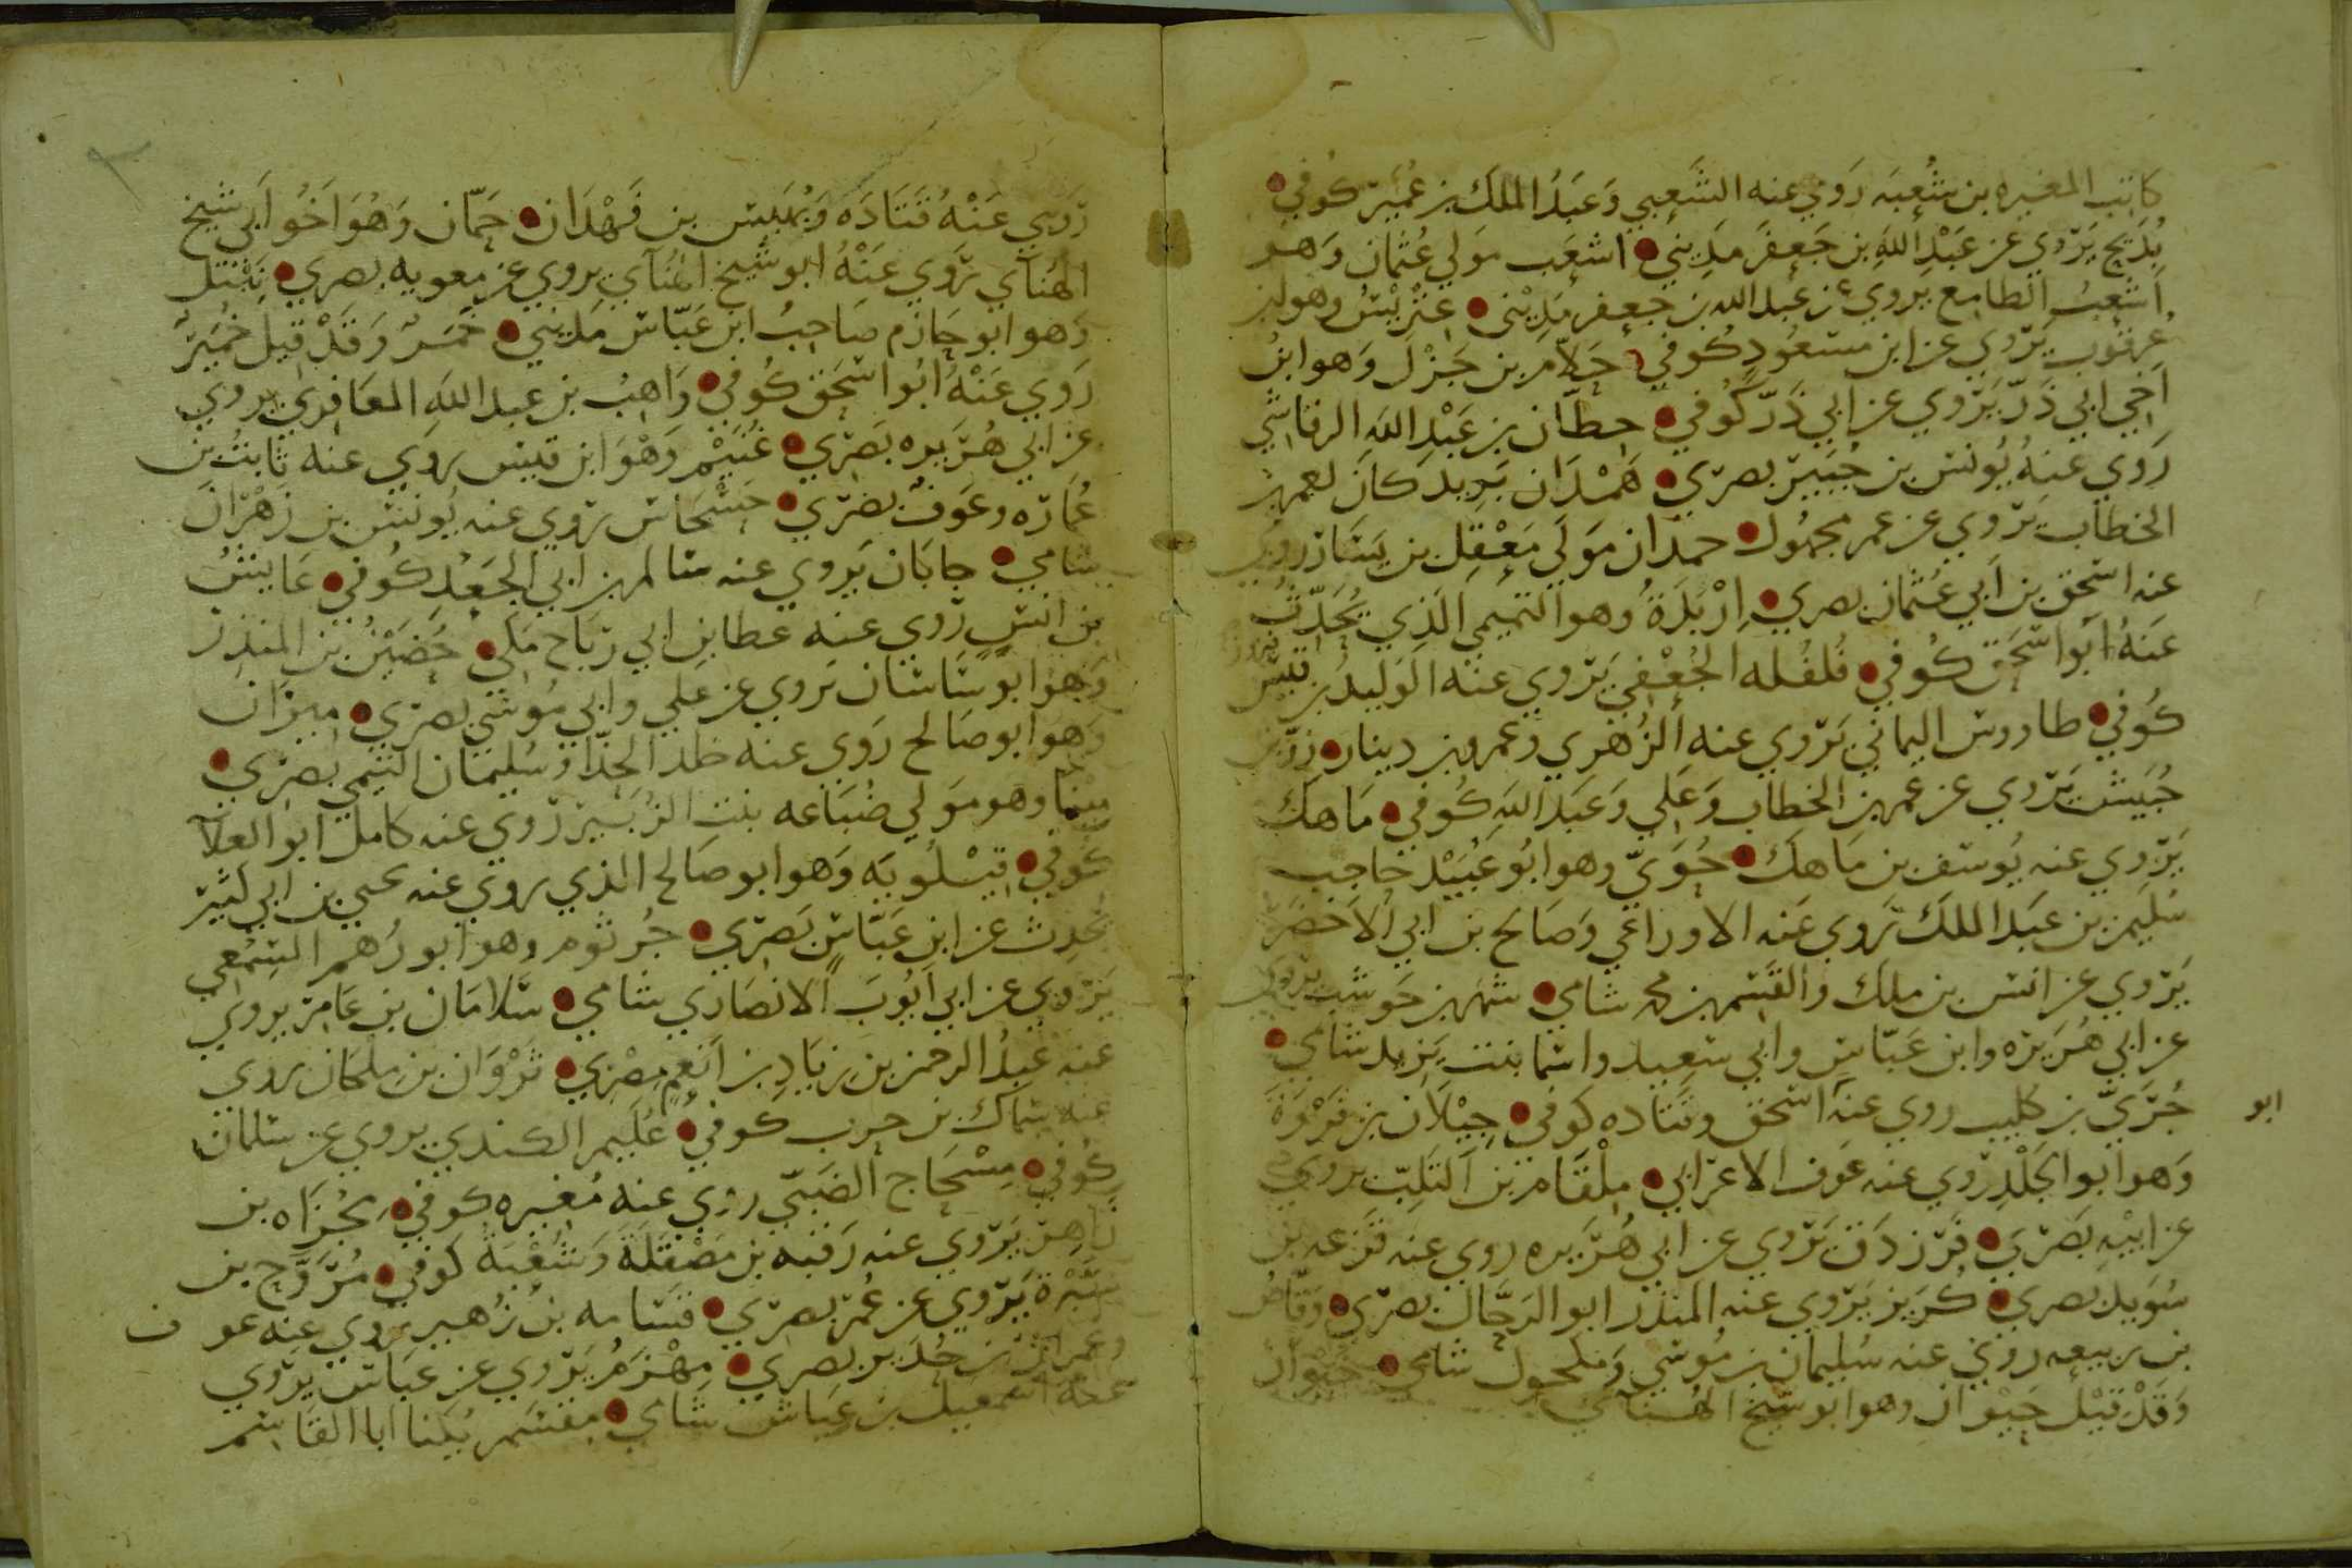 كاتب المغيره بن شعبه روي عنه الشعبي وعبد الملك بن عمير كوفي
بديح يروي عن عبد الله بن جعفر مديني اشعب مولي عثمان وهو
اشعب الطامع يروي عن عبد الله بن جعفر مديني عتريس وهو ابن
عرقوب يروي عن ابن مسعود كوفي حلام بن جزل وهو ابن
اخي ابي ذر يروي عن ابي ذر كوفي حطان بن عبد الله الرقاشي
روي عنه يونس بن جبير بصري همدان بريد كان لعمر بن
الخطاب يروي عن عمر مجهول حمدان مولي معقل بن يسار روي
عنه اسحق بن ابي عثمان بصري اربدة وهو التميمي الذي يحدث
عنه ابو اسحق كوفي فلفله الجعفي يروي عنه الوليد بن قيس
كوفي طاووس اليماني يروي عنه الزهري وعمرو بن دينار زر بن
حبيش يروي عن عمر بن الخطاب وعلي وعبد الله كوفي ماهك
يروي عنه يوسف بن ماهك حوي وهو ابو عبيد حاجب
سليمن بن عبد الملك يروي عنه الاوزاعي وصالح بن ابي الاخضر
يروي عن انس بن ملك والقسم بن محمد شامي شهر بن حوشب يروي
عن ابي هريره وابن عباس وابي سعيد واسما بنت يزيد شامي
جري بن كليب روي عنه اسحق وقتاده كوفي جيلان بن فروة
ابو
وهو ابو الجلد روي عنه عوف الاعرابي ملقام بن التلب يروي
عن ابيه بصري فرزدق يروي عن ابي هريره روي عنه قزعه بن
سويد بصري كريز يروي عنه المنذر ابو الرحال بصري وقاص
بن ربيعه روي عنه سليمان بن موسي ومكحول شامي حيوان
وقد قيل خيوان وهو ابو شيخ الهنائي
روي عنه قتاده وبهيس بن فهدان حمان وهو اخو ابي شيخ
الهناي يروي عنه ابو شيخ الهناي يروي عن معويه بصري نبتل
وهو ابو حازم صاحب ابن عباس مديني خمر وقد قيل خمير
روي عنه ابو اسحق كوفي واهب بن عبد الله المعافري يروي
عن ابي هريره بصري غنيم وهو ابن قيس يروي عنه ثابت بن
عماره وعوف بصري حسحاس يروي عنه يونس بن زهران
شامي جابان يروي عنه سالم بن ابي الجعد كوفي عايش
بن انس روي عنه عطا بن ابي رباح مكي حضين بن المنذر
وهو ابو ساسان يروي عن علي وابي موسي بصري ميزان
وهو ابو صالح روي عنه خلد الحذا وسليمان التيمي بصري
مينا وهو مولي ضباعه بنت الزبير روي عنه كامل ابو العلا
كوفي قيلويه وهو ابو صالح الذي يروي عنه يحيي بن ابي كثير
يحدث عن ابن عباس بصري جرثوم وهو ابو رهم السمعي
يروي عن ابي ايوب الانصاري شامي سلامان بن عامر يروي
عنه عبد الرحمن بن زياد بن انعم مصري ثروان بن ملحان يروي
عنه سماك بن حرب كوفي عليم الكندي يروي عن سلمان
كوفي مسحاج الضبي روي عنه مغيره كوفي مجزاه بن
زاهر يروي عنه رقبه بن مصقلة وشعبة كوفي مروح بن
سبرة يروي عن عمر بصري قسامه بن زهير يروي عنه عوف
وعمران بن حدير بصري مهزم يروي عن عباس يروي
عنه اسمعيل بن عياش شامي مقسم يكنا ابا القاسم